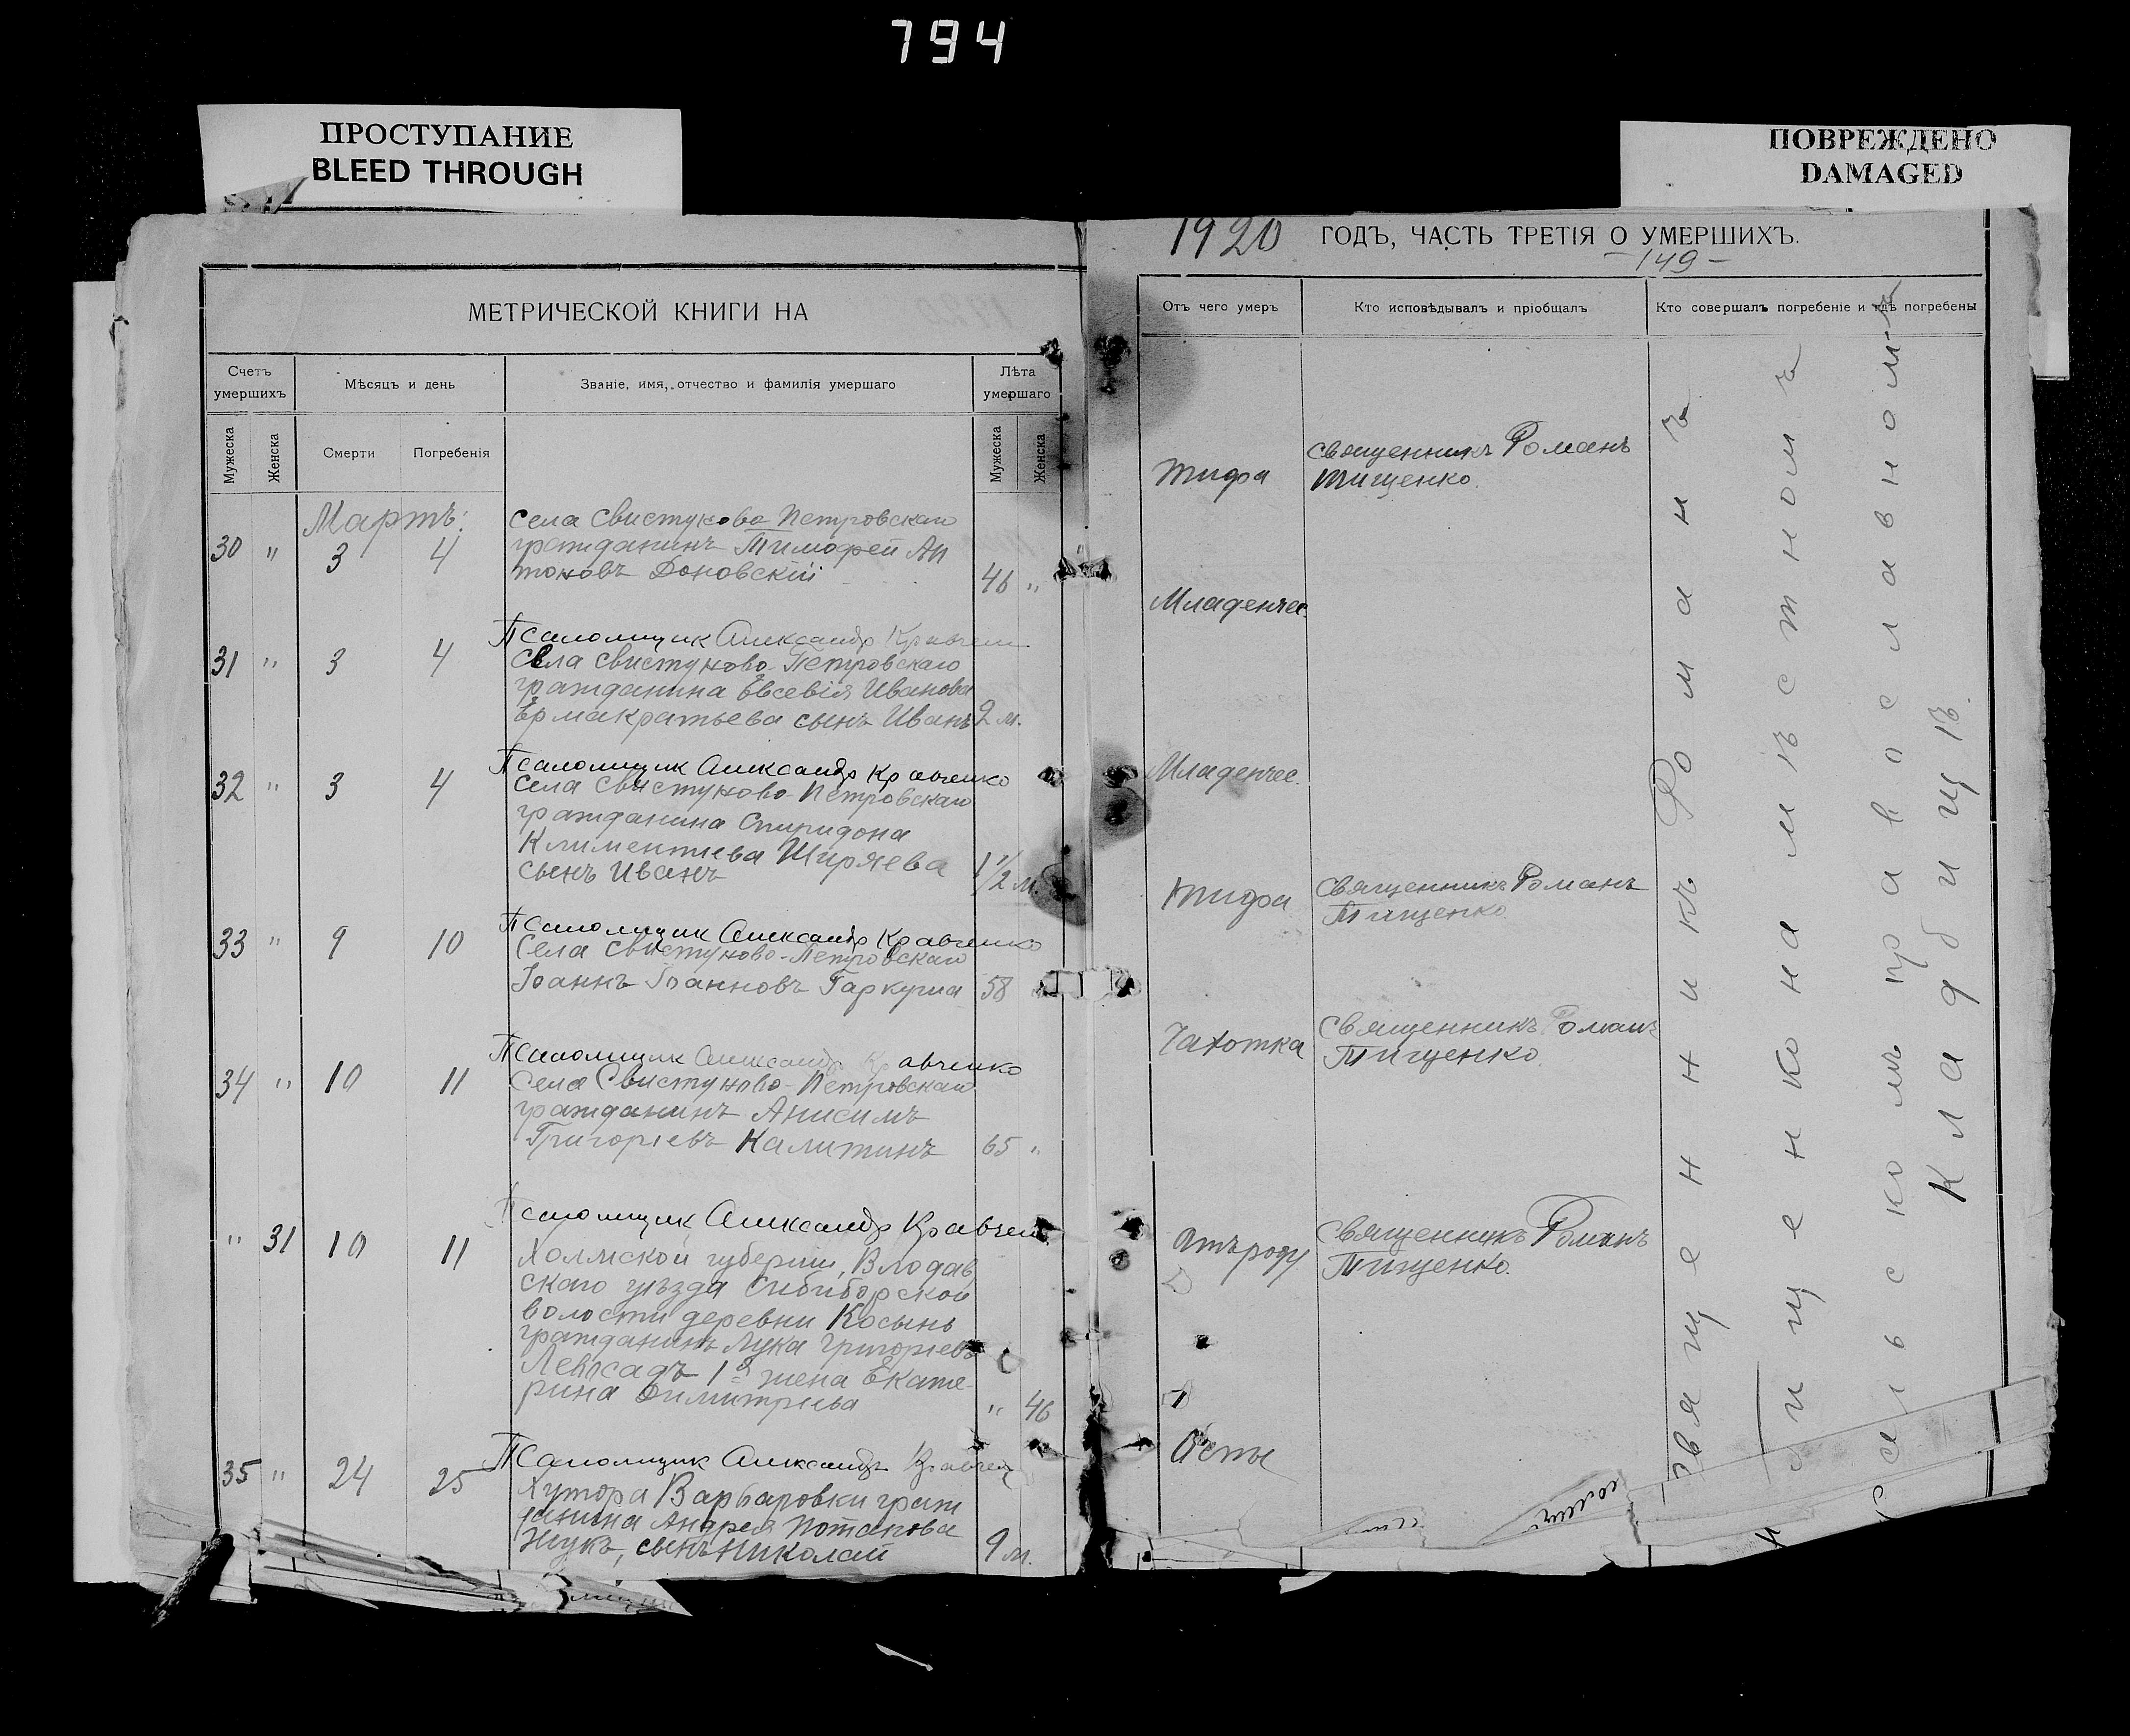 794
ПРОСТУПАНИЕ
BLEED THROUGH
ПОВРЕЖДЕНО
DAMAGED
МЕТРИЧЕСКОЙ КНИГИ НА
Счетъ умершихъ
Мѣсяцъ и день
Званіе, имя, отчество и фамилія умершаго
Лѣта умершаго
Мужеска
Женска
Смерти
Погребенія
Мужеска
Женска
Мартъ:
30 " 3 4
села Свистуново-Петровскаго
гражданинъ Тимофей Ан
тоновъ Доновскій
46 "
Псаломщик Александр Кравченко
31 " 3 4
села Свистуново-Петровскаго
гражданина Евсевія Иванова
Ермакратьева сынъ Иванъ 2 м.
Псаломщик Александр Кравченко
32 " 3 4
села Свистуново-Петровскаго
гражданина Спиридона
Климентиева Ширяева
сынъ Иванъ
1 1/2 м.
Псаломщик Александр Кравченко
33 " 9 10
села Свистуново-Петровскаго
Іоаннъ Іоанновъ Гаркуша 58
Псаломщик Александр Кравченко
34 " 10 11
села Свистуново-Петровскаго
гражданинъ Анисимъ
Григоріевъ Калитинъ 65 "
Псаломщик Александр Кравченко
" 31 10 11
Холмской губерніи, Влодав
скаго уѣзда Сибиборской
волости деревни Косынь
гражданинъ Лука Григоріевъ
1я жена Екате
рина Димитриева
" 46
Псаломщик Александр Кравчен
35 " 24 25
Хутора Варваровки граж
данина Андрея Потапова
Жукъ, сынъ Николай
9 м.
1920 ГОДЪ, ЧАСТЬ ТРЕТІЯ О УМЕРШИХЪ.
-149-
Отъ чего умеръ
Кто исповѣдывалъ и пріобщалъ
Кто совершалъ погребеніе и гдѣ погребены
Тифа
священникъ Романъ
Тищенко.
Младенчес
Младенчес.
Тифа
священникъ Романъ
Тищенко
Чахотка
священникъ Романъ
Тищенко.
Отъ роду
священникъ Романъ
Тищенко.
Оспы
Священникъ Романъ
Тищенко на мѣстномъ
сельскомъ православномъ
кладбищѣ.